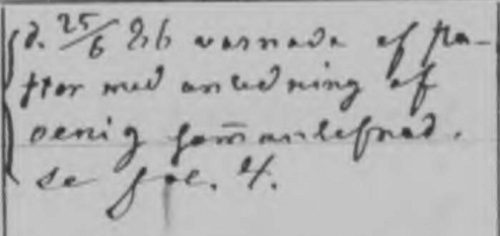 d. 25/6 86 varnade af pa-
stor med anledning af
oenig sam̄anlefnad.
se fol. 4.